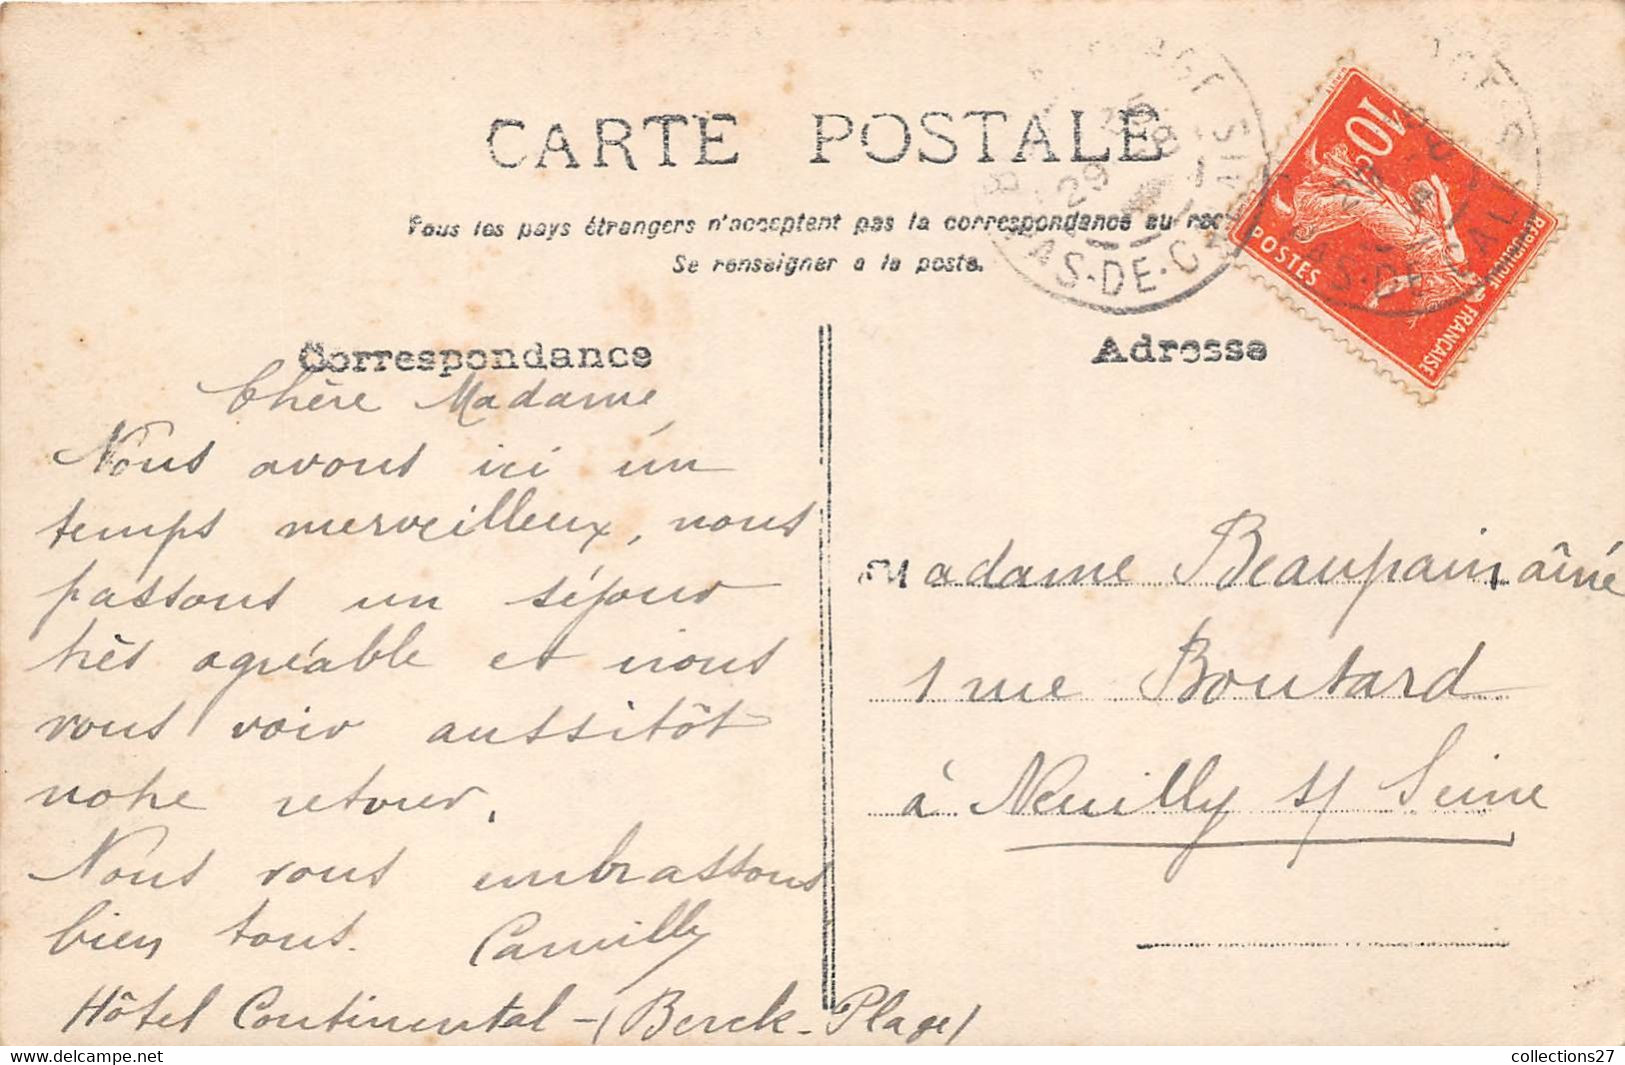 CARTE POSTALE
Tous les pays étrangers n'acceptent pas la correspondance au rec
Se renseigner a la poste.
Correspondance
Chère Madame
Nous avons ici un
temps merveilleux, nous
passons un séjour
très agréable et irons
vous voir aussitôt
notre retour.
Nous vous embrassons
bien tous. Camilly
Hôtel Continental - (Berck-Plage)
Adresse
Madame Beaupain aîné
1 rue Boutard
à Neuilly s/ Seine
10c
POSTES
REPUBLIQUE FRANÇAISE
PAS-DE-CALAIS
29
PAS-DE-CALAIS
collections27